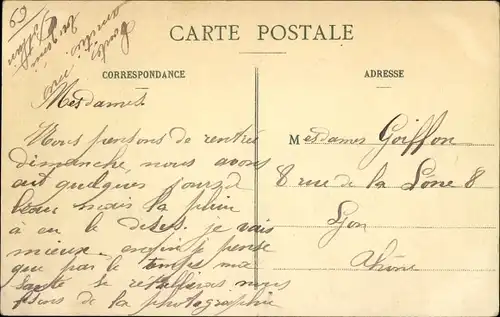 CARTE POSTALE
CORRESPONDANCE
ADRESSE
Mesdames.
Nous pensons de rentré
dimanche, nous avons
eut quelques jours d
beau mais la pluie
à eu le je vais
mieux. enfin je pense
que par le temps ma
santé se nous
de la photographie
Mesdames Goiffon
8 rue de la Lône 8
Lyon
Rhône